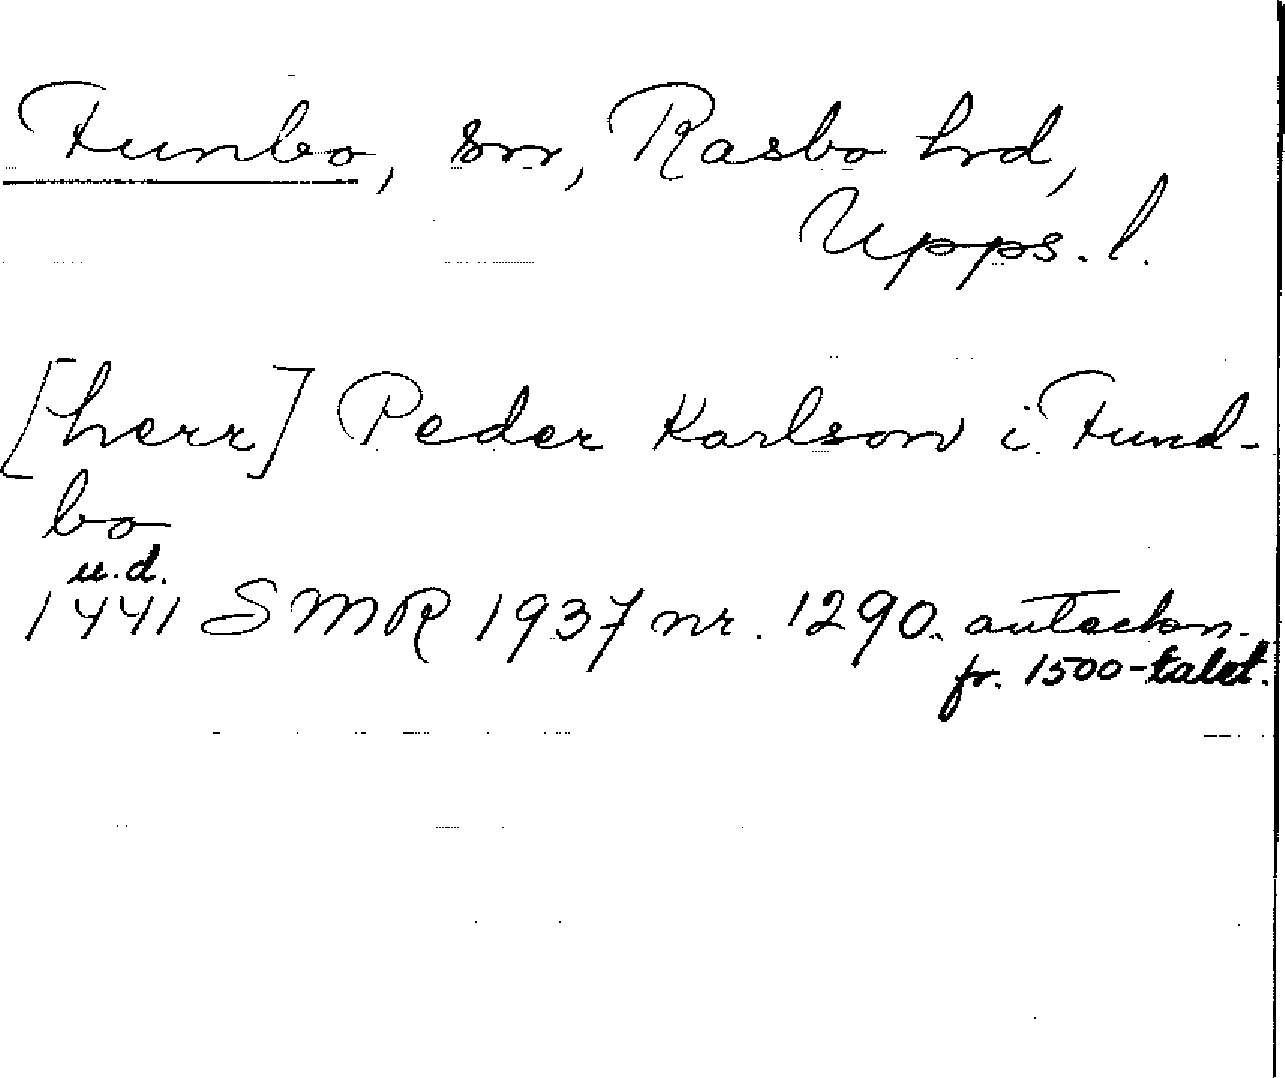 Funbo, sn, Rasbo hrd,
Upps. l.
[herr] Peder Karlson i Fund-
bo
u.d.
1441 SMR 1937 nr. 1290. anteckn.
fr. 1500-talet.